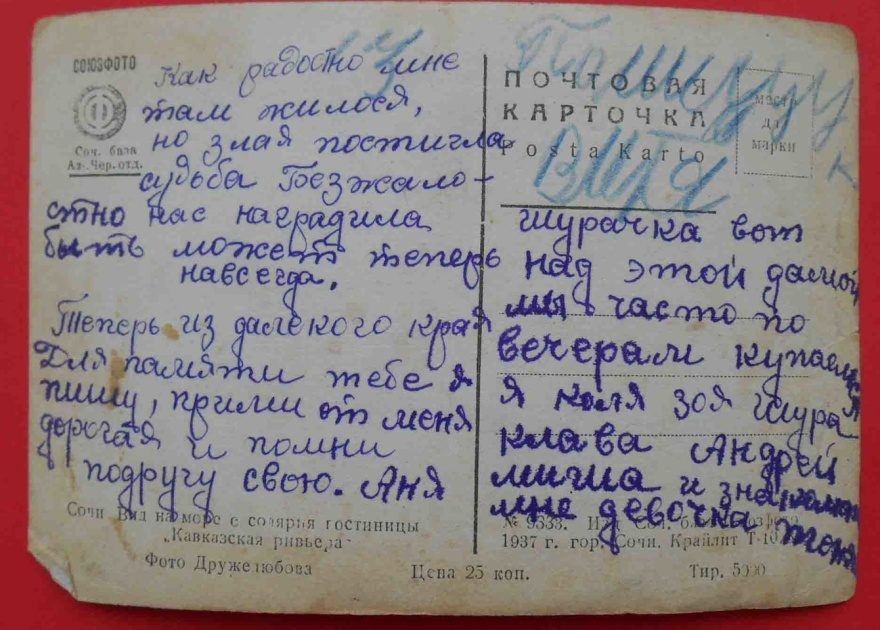 СОЮЗФОТО
Соч. база
Аз-Чер. отд.
Как радостно мне
там жилося,
но злая постигла
судьба Безжало-
стно нас наградила
быть может теперь
навсегда.
Теперь из далекого края
Для памяти тебе я
пишу, прими от меня
дорогая и помни
подругу свою. Аня
Сочи Вид на море с солярья гостиницы
„Кавказская ривьера"
Фото Дружелюбова
Цена 25 коп.
Пишу
к
ПОЧТОВАЯ
КАРТОЧКА
Poŝta Karto
место
для
марки
шурачка вот
над этой дамой
мы часто по
вечерам купаемся
я коля зоя шура
клава Андрей
миша и знакомая
мне девочка тоня
№ 9333. Изд. Соч. базы Союзфото
1937 г. гор. Сочи. Крайлит Т-10
Тир. 5000